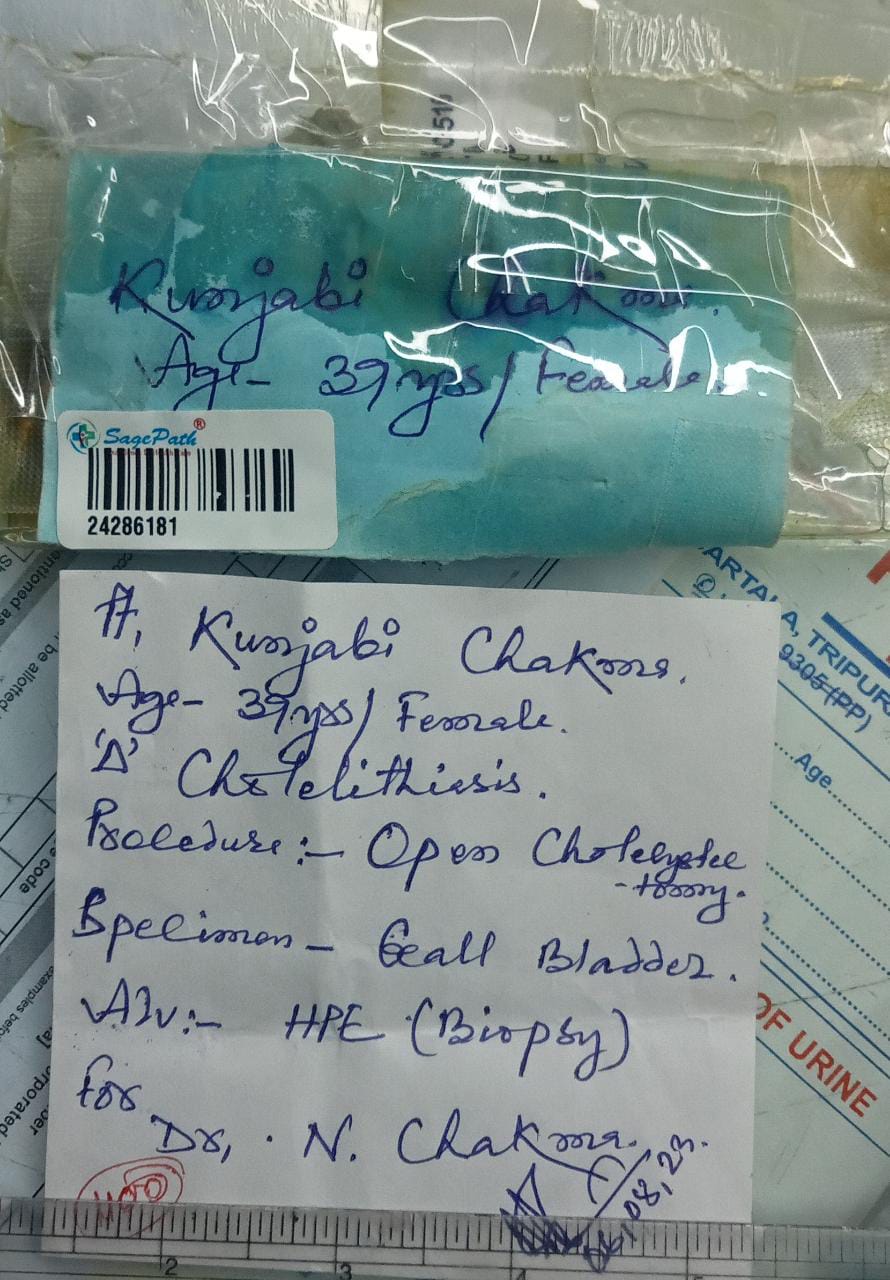 Kunjabi Chakma.
Age- 39 yrs/ Female.
SagePath®
24286181
Kunjabi Chakma.
Age- 39 yrs/ Female.
'Δ' Cholelithiasis.
Procedure:- Open Cholecystec
-tomy.
Specimen- Gall Bladder.
Adv:- HPE (Biopsy)
For
Dr, . N. Chakma.
08,23.
ARTALA, TRIPURA
9305 (PP)
Age
OF URINE
entioned as
be allotted
code
examples before
orporated
2 3 4